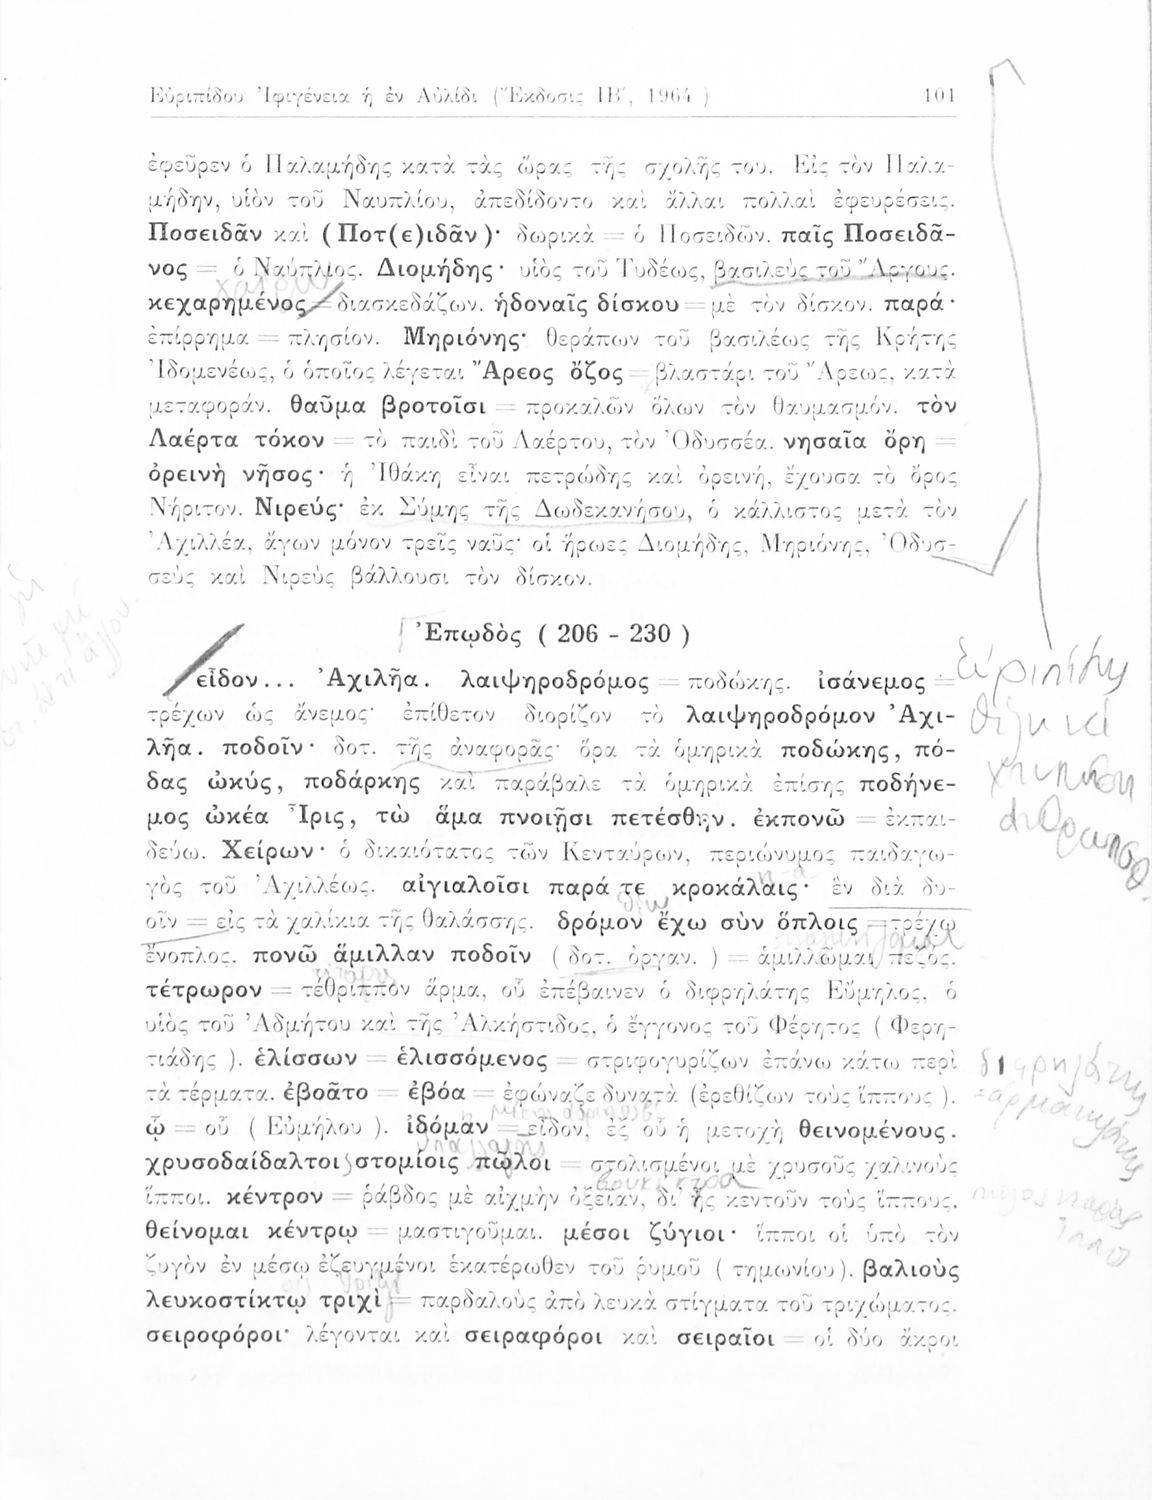 Εὐριπίδου Ἰφιγένεια ἡ ἐν Αὐλίδι (Ἔκδοσις ΙΒ΄, 1964 ) 101
ἐφεῦρεν ὁ Παλαμήδης κατὰ τὰς ὥρας τῆς σχολῆς του. Εἰς τὸν Παλα-
μήδην, υἱὸν τοῦ Ναυπλίου, ἀπεδίδοντο καὶ ἄλλαι πολλαὶ ἐφευρέσεις.
Ποσειδᾶν καὶ (Ποτ(ε)ιδᾶν)· δωρικὰ = ὁ Ποσειδῶν. παῖς Ποσειδᾶ-
νος = ὁ Ναύπλιος. Διομήδης· υἱὸς τοῦ Τυδέως, βασιλεὺς τοῦ Ἄργους.
κεχαρημένος = διασκεδάζων. ἡδοναῖς δίσκου = μὲ τὸν δίσκον. παρά·
ἐπίρρημα = πλησίον. Μηριόνης· θεράπων τοῦ βασιλέως τῆς Κρήτης
Ἰδομενέως, ὁ ὁποῖος λέγεται Ἄρεος ὄζος = βλαστάρι τοῦ Ἄρεως, κατὰ
μεταφοράν. θαῦμα βροτοῖσι = προκαλῶν ὅλων τὸν θαυμασμόν. τὸν
Λαέρτα τόκον = τὸ παιδὶ τοῦ Λαέρτου, τὸν Ὀδυσσέα. νησαῖα ὄρη =
ὀρεινὴ νῆσος· ἡ Ἰθάκη εἶναι πετρώδης καὶ ὀρεινή, ἔχουσα τὸ ὄρος
Νήριτον. Νιρεύς· ἐκ Σύμης τῆς Δωδεκανήσου, ὁ κάλλιστος μετὰ τὸν
Ἀχιλλέα, ἄγων μόνον τρεῖς ναῦς· οἱ ἥρωες Διομήδης, Μηριόνης, Ὀδυσ-
σεὺς καὶ Νιρεὺς βάλλουσι τὸν δίσκον.
Ἐπῳδὸς ( 206 - 230 )
εἶδον... Ἀχιλῆα. λαιψηροδρόμος = ποδώκης. ἰσάνεμος =
τρέχων ὡς ἄνεμος· ἐπίθετον διορίζον τὸ λαιψηροδρόμον Ἀχι-
λῆα. ποδοῖν· δοτ. τῆς ἀναφορᾶς· ὅρα τὰ ὁμηρικὰ ποδώκης, πό-
δας ὠκύς, ποδάρκης καὶ παράβαλε τὰ ὁμηρικὰ ἐπίσης ποδήνε-
μος ὠκέα Ἶρις, τὼ ἅμα πνοιῇσι πετέσθην. ἐκπονῶ = ἐκπαι-
δεύω. Χείρων· ὁ δικαιότατος τῶν Κενταύρων, περιώνυμος παιδαγω-
γὸς τοῦ Ἀχιλλέως. αἰγιαλοῖσι παρά τε κροκάλαις· ἓν διὰ δυ-
οῖν = εἰς τὰ χαλίκια τῆς θαλάσσης. δρόμον ἔχω σὺν ὅπλοις = τρέχω
ἔνοπλος. πονῶ ἅμιλλαν ποδοῖν ( δοτ. ὀργαν. ) = ἁμιλλῶμαι πεζός.
τέτρωρον = τέθριππον ἅρμα, οὗ ἐπέβαινεν ὁ διφρηλάτης Εὔμηλος, ὁ
υἱὸς τοῦ Ἀδμήτου καὶ τῆς Ἀλκήστιδος, ὁ ἔγγονος τοῦ Φέρητος ( Φερη-
τιάδης ). ἑλίσσων = ἑλισσόμενος = στριφογυρίζων ἐπάνω κάτω περὶ
τὰ τέρματα. ἐβοᾶτο = ἐβόα = ἐφώναζε δυνατὰ (ἐρεθίζων τοὺς ἵππους ).
ᾧ = οὗ ( Εὐμήλου ). ἰδόμαν = εἶδον, ἐξ οὗ ἡ μετοχὴ θεινομένους.
χρυσοδαίδαλτοι στομίοις πῶλοι = στολισμένοι μὲ χρυσοῦς χαλινοὺς
ἵπποι. κέντρον = ῥάβδος μὲ αἰχμὴν ὀξεῖαν, δι' ἧς κεντοῦν τοὺς ἵππους.
θείνομαι κέντρῳ = μαστιγοῦμαι. μέσοι ζύγιοι· ἵπποι οἱ ὑπὸ τὸν
ζυγὸν ἐν μέσῳ ἐζευγμένοι ἑκατέρωθεν τοῦ ῥυμοῦ ( τημωνίου). βαλιοὺς
λευκοστίκτῳ τριχὶ = παρδαλοὺς ἀπὸ λευκὰ στίγματα τοῦ τριχώματος.
σειροφόροι· λέγονται καὶ σειραφόροι καὶ σειραῖοι = οἱ δύο ἄκροι